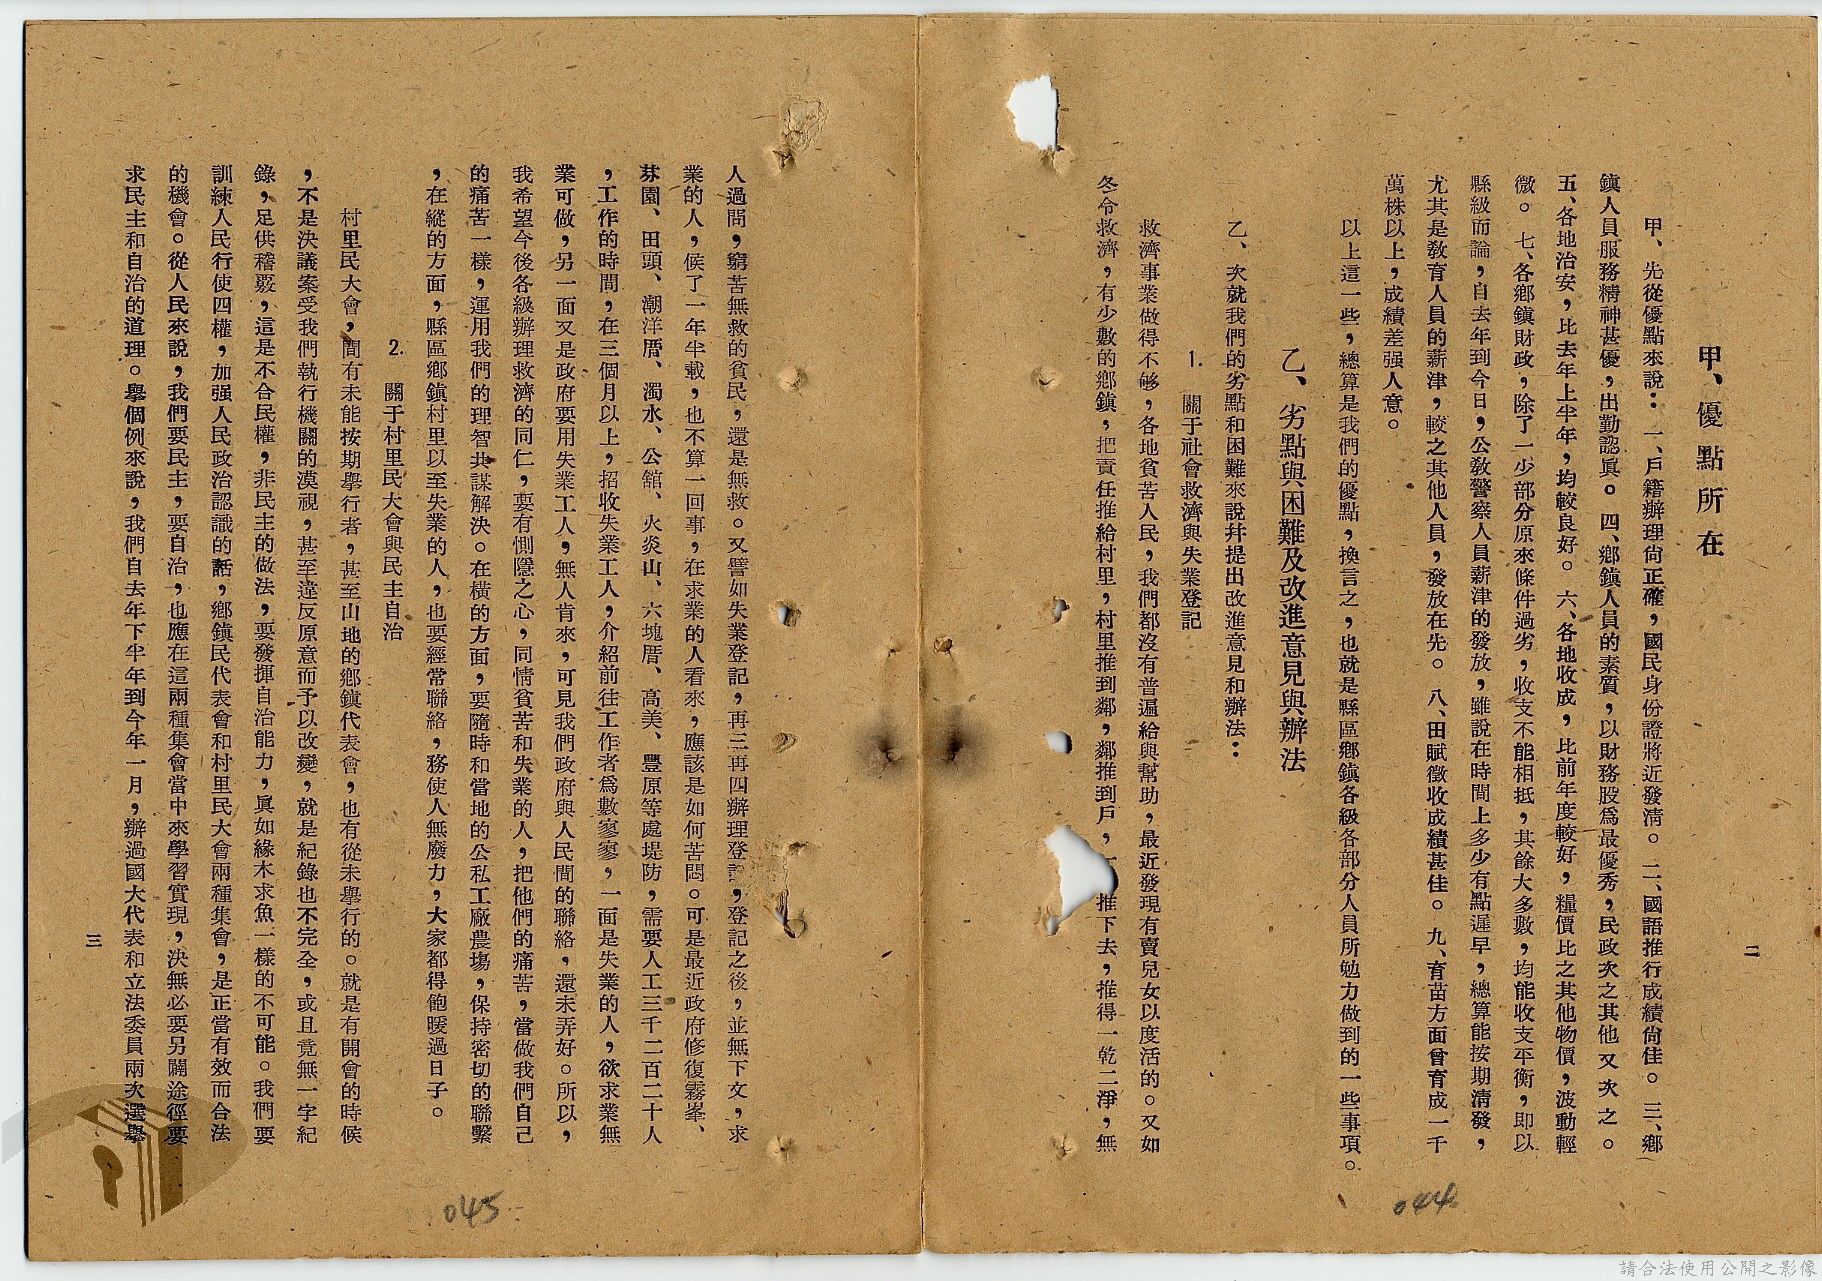 二
甲、優點所在
甲、先從優點來說：一、戶籍辦理尙正確，國民身份證將近發清。二、國語推行成績尙佳。三、鄉
鎭人員服務精神甚優，出勤認眞。四、鄉鎭人員的素質，以財務股爲最優秀，民政次之其他又次之。
五、各地治安，比去年上半年，均較良好。六、各地收成，比前年度較好，糧價比之其他物價，波動輕
微。七、各鄉鎭財政，除了一少部分原來條件過劣，收支不能相抵，其餘大多數，均能收支平衡，卽以
縣級而論，自去年到今日，公敎警察人員薪津的發放，雖說在時間上多少有點遲早，總算能按期淸發，
尤其是敎育人員的薪津，較之其他人員，發放在先。八、田賦徵收成績甚佳。九、育苗方面曾育成一千
萬株以上，成績差强人意。
以上這一些，總算是我們的優點，換言之，也就是縣區鄉鎭各級各部分人員所勉力做到的一些事項。
乙、劣點與困難及改進意見與辦法
乙、次就我們的劣點和困難來說幷提出改進意見和辦法：
1. 關于社會救濟與失業登記
救濟事業做得不够，各地貧苦人民，我們都沒有普遍給與幫助，最近發現有賣兒女以度活的。又如
冬令救濟，有少數的鄕鎭，把責任推給村里，村里推到鄰，鄰推到戶，一推下去，推得一乾二淨，無
044
人過問，窮苦無救的貧民，還是無救。又譬如失業登記，再三再四辦理登記，登記之後，並無下文，求
業的人，侯了一年半載，也不算一回事，在求業的人看來，應該是如何苦悶。可是最近政府修復霧峯、
芬園、田頭、潮洋厝、濁水、公舘、火炎山、六塊厝、高美、豐原等處堤防，需要人工三千二百二十人
，工作的時間，在三個月以上，招收失業工人，介紹前往工作者爲數寥寥，一面是失業的人，欲求業無
業可做，另一面又是政府要用失業工人，無人肯來，可見我們政府與人民間的聯絡，還未弄好。所以，
我希望今後各級辦理救濟的同仁，要有惻隱之心，同情貧苦和失業的人，把他們的痛苦，當做我們自己
的痛苦一樣，運用我們的理智共謀解決。在橫的方面，要隨時和當地的公私工廠農塲，保持密切的聯繫
，在縱的方面，縣區鄉鎭村里以至失業的人，也要經常聯絡，務使人無廢力，大家都得飽暖過日子。
2. 關于村里民大會與民主自治
村里民大會，間有未能按期舉行者，甚至山地的鄕鎭代表會，也有從未舉行的。就是有開會的時候
，不是決議案受我們執行機關的漠視，甚至違反原意而予以改變，就是紀錄也不完全，或且竟無一字紀
錄，足供稽覈，這是不合民權，非民主的做法，要發揮自治能力，眞如緣木求魚一樣的不可能。我們要
訓練人民行使四權，加强人民政治認識的話，鄉鎭民代表會和村里民大會兩種集會，是正當有效而合法
的機會。從人民來說，我們要民主，要自治，也應在這兩種集會當中來學習實現，決無必要另闢途徑要
求民主和自治的道理。舉個例來說，我們自去年下半年到今年一月，辦過國大代表和立法委員兩次選舉
三
045
請合法使用公開之影像